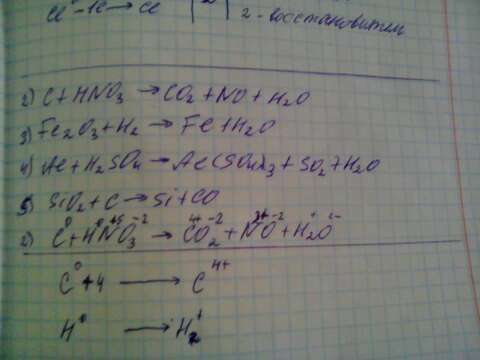 Cl⁰ - 1e → Cl 2
2 - восстановитель
2) C + HNO₃ → CO₂ + NO + H₂O
3) Fe₂O₃ + H₂ → Fe + H₂O
4) Al + H₂SO₄ → Al(SO₄)₃ + SO₂ + H₂O
5) SiO₂ + C → Si + CO
2) C⁰ + H⁺N⁺⁵O₃⁻² → C⁴⁺O₂⁻² + N²⁺O⁻² + H₂⁺O²⁻
C⁰ + 4 → C⁴⁺
H⁰ → H₂⁺